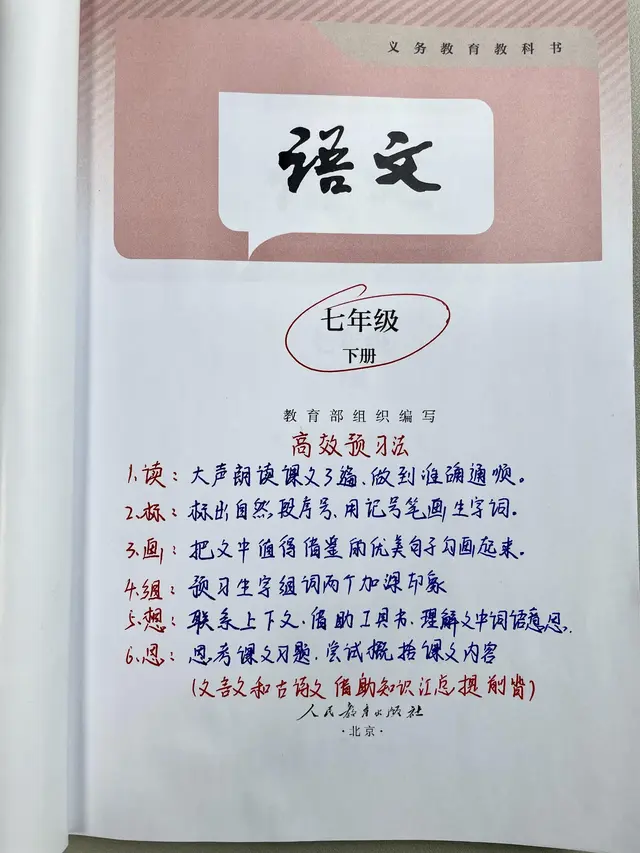 义务教育教科书
语文
七年级
下册
教育部组织编写
高效预习法
1.读：大声朗读课文3遍、做到准确通顺。
2.标：标出自然段序号、用记号笔画生字词。
3.画：把文中值得借鉴的优美句子勾画起来。
4.组：预习生字组词两个加深印象
5.想：联系上下文、借助工具书、理解文中词语意思.
6.思：思考课文习题、尝试概括课文内容
(文言文和古诗文借助知识汇总提前背)
人民教育出版社
·北京·